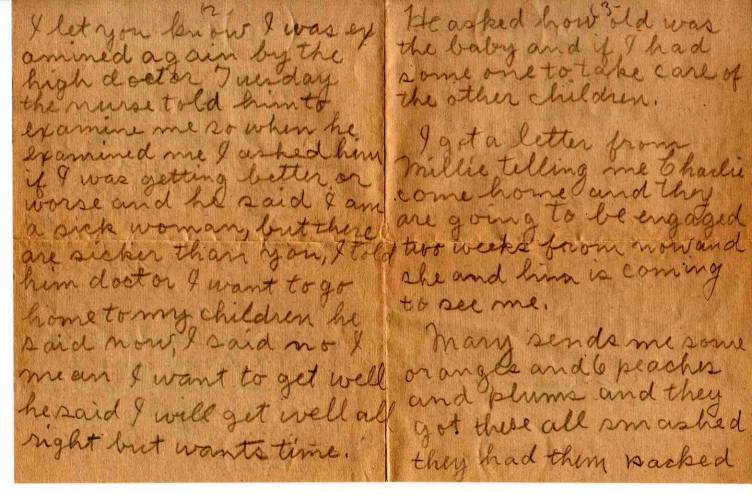 2
I let you know I was ex
amined again by the
high doctor Tuesday
the nurse told him to
examine me so when he
examined me I asked him
if I was getting better or
worse and he said I am
a sick woman, but there
are sicker than you, I told
him doctor I want to go
home to my children he
said now, I said no I
mean I want to get well
he said I will get well all
right but wants time.
3
He asked how old was
the baby and if I had
some one to take care of
the other children.
I got a letter from
Millie telling me Charlie
come home and they
are going to be engaged
two weeks from now and
she and him is coming
to see me.
Mary sends me some
oranges and 6 peaches
and plums and they
got these all smashed
they had them packed